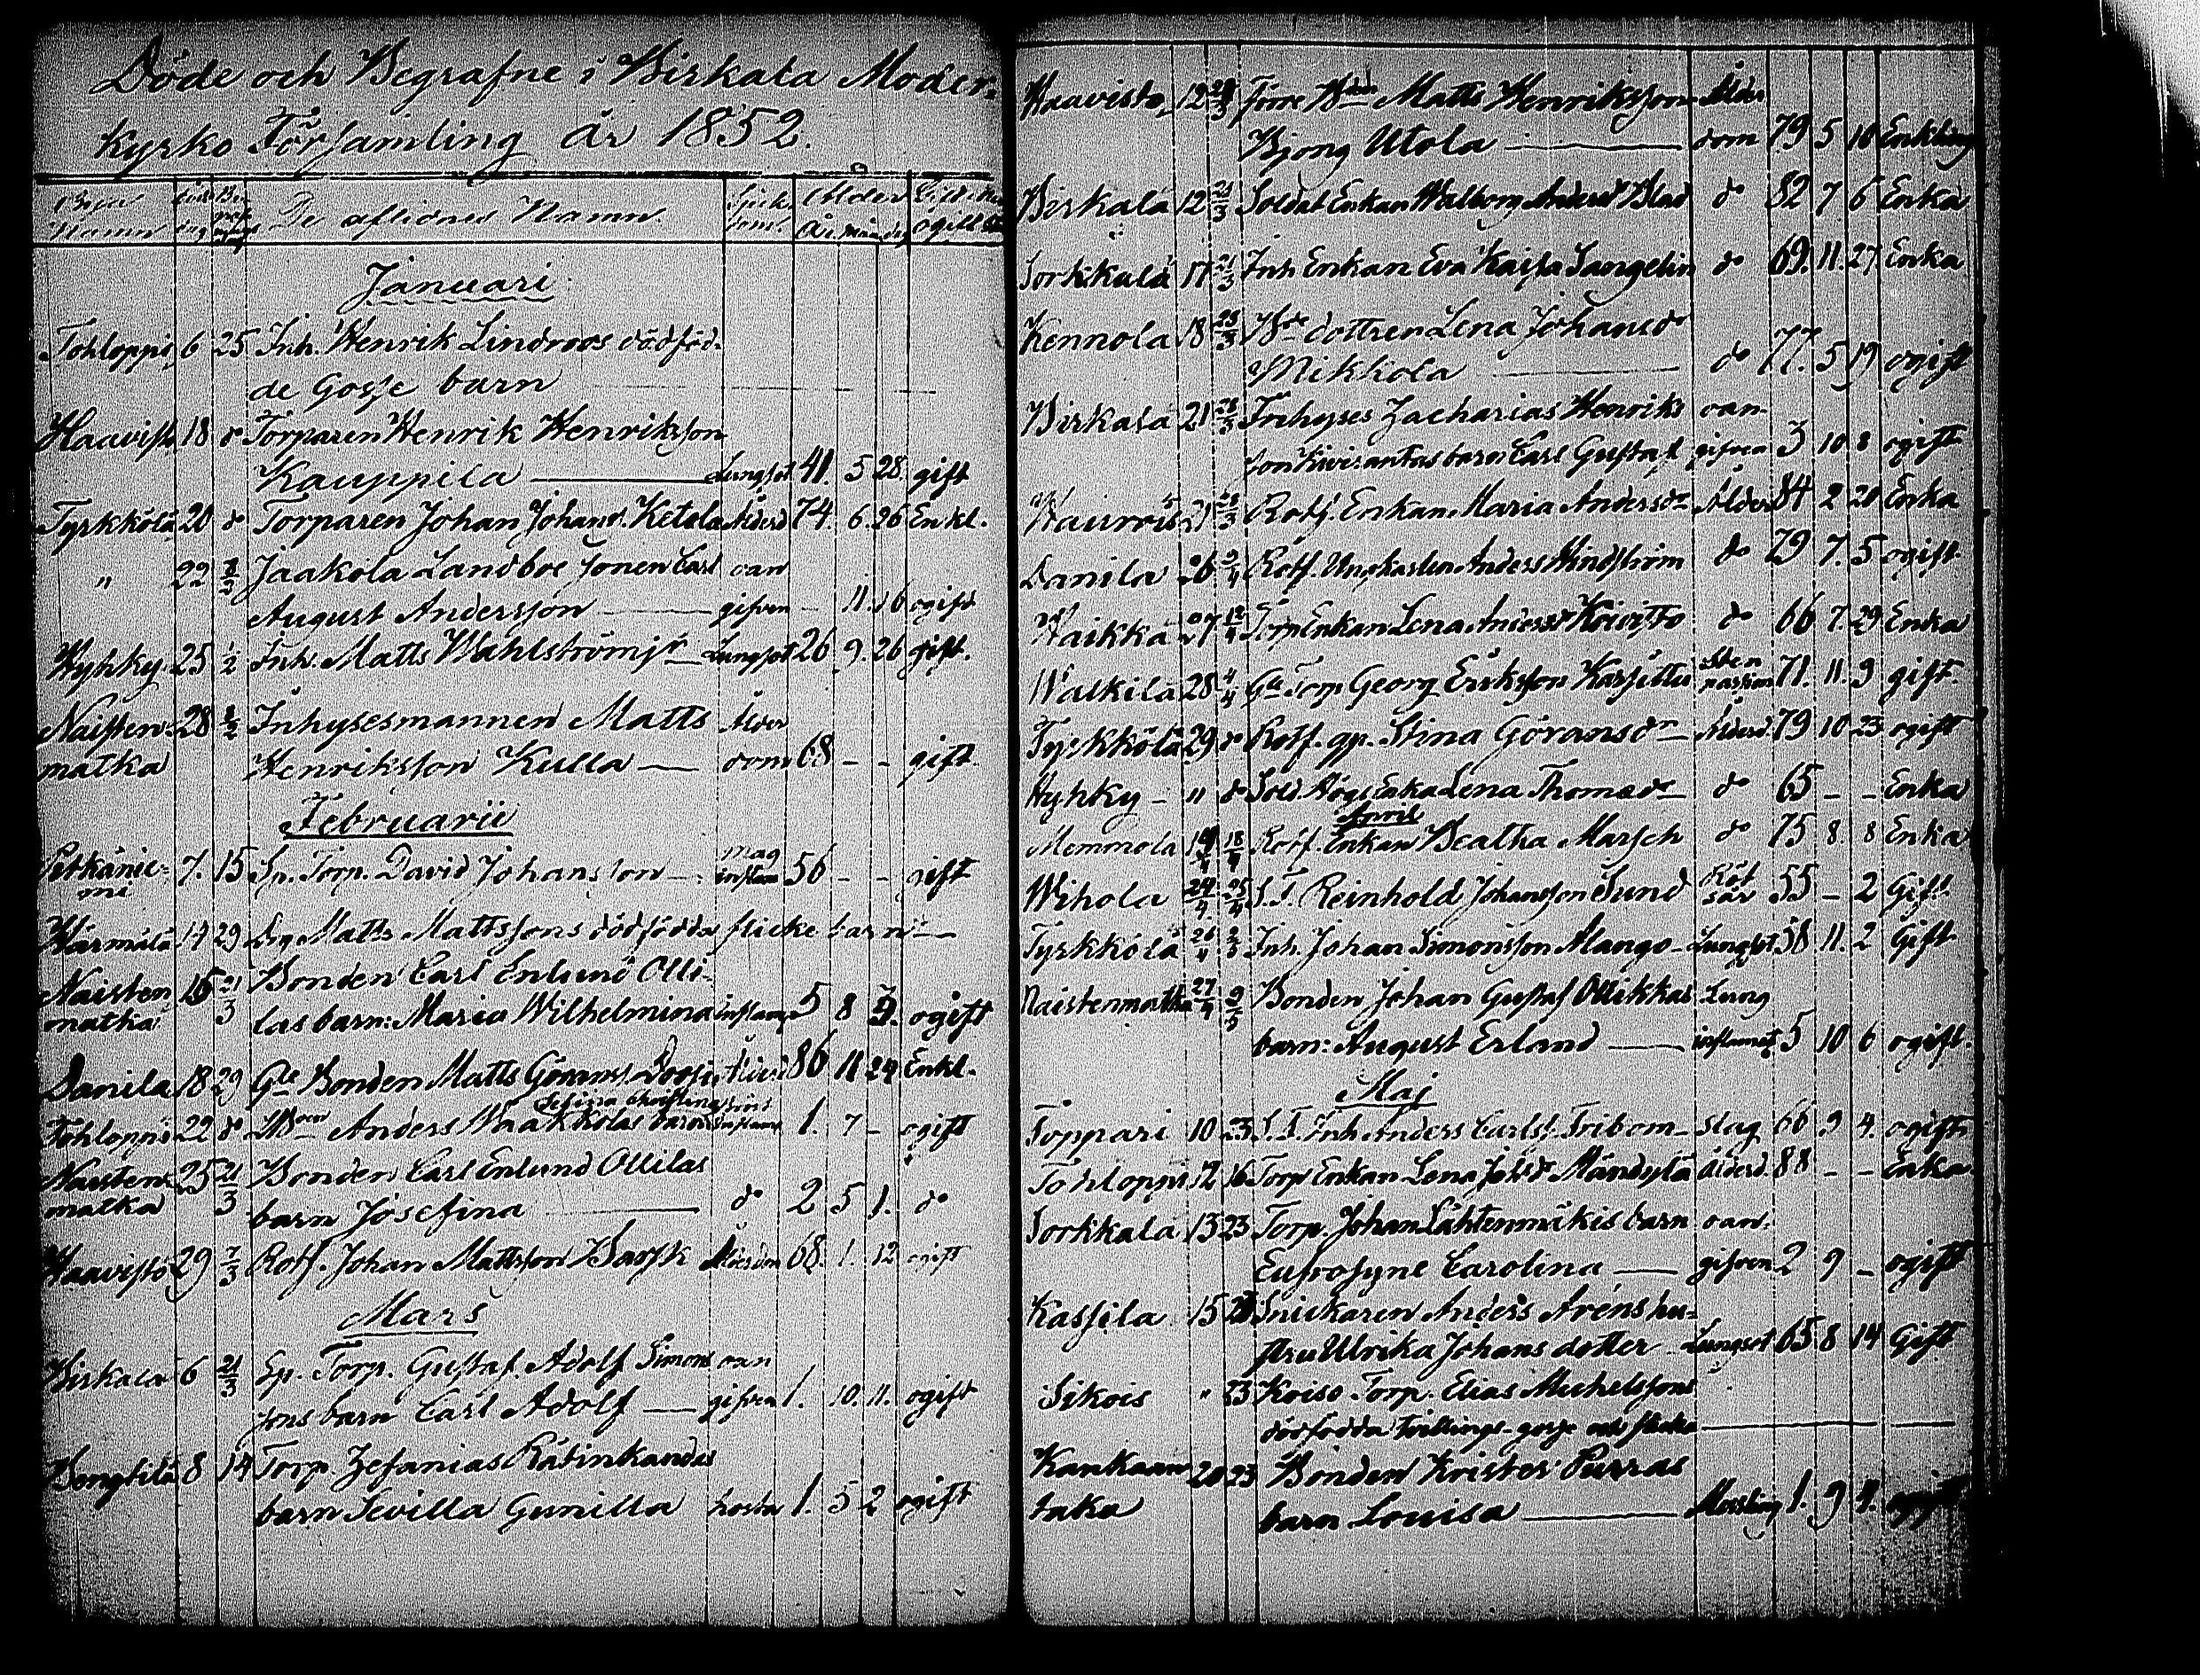 Döde och Begrafne i Birkala Moder-
kyrko Församling År 1852.
Byar Namn De aflidnes Namn Sjukdom Ålder
År
Januari
Tohloppi 6 25 Inh. Henrik Lindroos dödföd-
de Gosse barn
Haavisto 18 do Torparen Henrik Henriksson
Kauppila Lungsot 41. 5 28. gift
Tyrkkölä 20 do Torparen Johan Johans. Ketola Ålderd 74. 6. 26 Enkl.
" 22 8/2 Jaakola Landboe Sonen Carl oan
August Andersson gifven - 11. 16 ogift
Hyhky 25 1/2 Inh. Matts Wahlström jr Lungsot 26 9. 26 gift.
Naisten- 28 8/2 Inhysesmannen Matts Ålder
matka Henriksson Kulla dom 68 - - gift.
Februarii
Petkänie- 7. 15 Sp. Torp. David Johansson mag
mi inflam 56 - - gift
Härmälä 14 29 Drg Matts Mattssons dödfödda flicke barn
Naisten 15 21/3 Bonden Carl Enlund Olli-
matka las barn: Maria Wilhelmina inflam 5 8 5. ogift
Danila 18 29 Gle Bonden Matts Görans. 86 11 24 Enkl.
Tohloppi 22 do Anders Waakkolas barn 1. 7 - ogift
Naisten- 25 21/3 Bonden Carl Enlund Ollilas
matka barn Josefina do 2 5 1. do
Haavisto 29 7/3 Rotf. Johan Mattsson Barsk Ålderdom 68. 1. 12 ogift
Mars
Birkala 6 21/3 Sp. Torp. Gustaf Adolf Simons oan
sons barn Carl Adolf gifven 1. 10. 11. ogift
8 14 Torp. Zefanias Rätinkandes
barn Sevilla Gunilla hosta 1. 5 2 ogift
Haavisto 12 Förre Matts Henriksson Ålder
Utola dom 79 5 16 Enkling
Birkala 12 21/3 Soldat Enkan Walborg Andersdr Blad do 82 7 6 Enka
Sorkkala 17 21/3 Inh. Enkan Eva Kajsa Sangelin do 69. 11. 27 Enka
Kennola 18 28/3 Bde dottren Lena Johansdr
Mikkola do 77. 5 19 ogift
Birkala 21 28/3 Inhyses Zacharias Henriks oan-
son Kivirantas barn Carl Gustaf gifven 3 10 8 ogift
21 28/3 Rotf. Enkan Maria Andersdr Ålder 84 2 20 Enka
Danila 26 Rotf. Ungkarlen Anders Hindström do 79 7. 5 ogift
Waikka 27 12/4 Torp Enkan Lena Andersdr Koivisto do 66 7. 29 Enka
Walkila 28 4/4 Gle Torp Georg Eriksson Sten
passion 71. 11. 9 gift
Tyrkkölä 29 do Rotf. qp. Stina Göransdr Ålderd. 79 10 23 ogift
Hyhky - " do Sold. Högs Enka Lena Thomædr do 65 - - Enka
April
Memmola 18/4 Rotf. Enkan Beatha Marsch do 75 8. 8 Enka
Wihola 24/4 25/4 S. T. Reinhold Johansson Sund Röt
sår 55 - 2 Gift
Tyrkkölä 26/4 2/5 Inh. Johan Simonsson Alango Lungsot 58 11. 2 Gift
Naistenmatka 27/4 9/5 Bonden Johan Gustaf Ollikkas Lung
barn: August Erland inflamat 5 10 6 ogift.
Maj
Toppari 10 23 S. T. Inh. Anders Carlss. Fribom slag 66 9 4. ogift
Tohloppi 12 16 Torp Enkan Lena Johsdr Mändylä ålderd. 88 - - Enka
Sorkkala 13 23 Torp. Johan Lähtenmäkis barn oan
Eufrosyne Carolina gifven 2 9 - ogift
Kassila 15 Snickaren Anders Aréns hu-
stru Ulrika Johans dotter Lungsot 65 8 14 Gift
Sikois " 23 Koiso Torp. Elias Michelssons
dödfödda tvillings-gosse och flicka
Kankaan 20 23 Bonden Krister Purras
taka barn Louisa Messling 1. 9 4. ogift